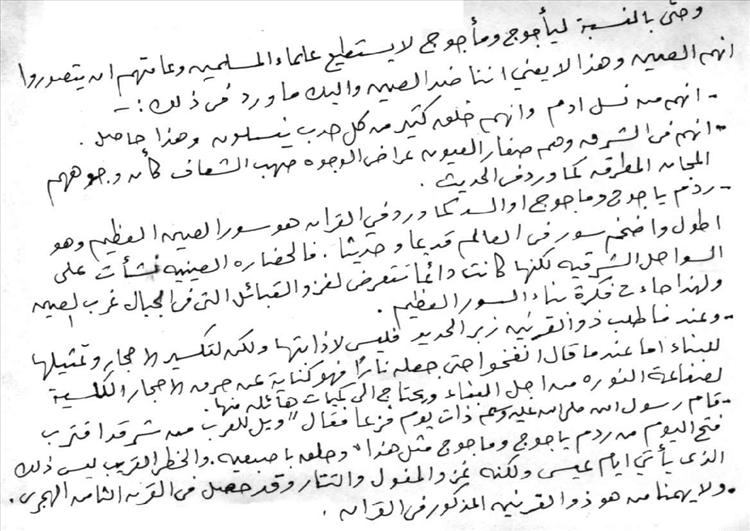 وحتى بالنسبة ليأجوج ومأجوج لا يستطيع علماء المسلمين وعامتهم ان يتصوروا
انهم الصين وهذا لا يعني اننا ضد الصين واليك ما ورد في ذلك :-
- انهم من نسل ادم وانهم خلق كثير من كل حدب ينسلون وهذا حاصل .
- انهم في الشرق وهم صغار العيون عراض الوجوه صهب الشعاف كأن وجوههم
المجان المطرقة كما ورد في الحديث .
- ردم ياجوج وماجوج او السد كما ورد في القران هو سور الصين العظيم وهو
اطول واضخم سور في العالم قديما وحديثا . فالحضاره الصينيه نشأت على
السواحل الشرقيه لكنها كانت دائما تتعرض لغزو القبائل التي في الجبال غرب الصين
ولهذا جاءت فكرة بناء السور العظيم .
- وعندما طلب ذو القرنين زبر الحديد فليس لاذابتها ولكن لتكسير الاحجار
للبناء اما عندما قال انفخوا حتى جعله نارا فهو كناية عن حرق الاحجار الكلسية
لصناعة النوره من اجل البناء ويحتاج الى كميات هائله منها .
- قام رسول الله صلى الله عليه وسلم ذات يوم فزعا فقال " ويل للعرب من شر قد اقترب
فتح اليوم من ردم ياجوج وماجوج مثل هذا " وحلق باصبعيه . والخطر القريب ليس ذلك
الذي يأتي ايام عيسى ولكنه غزو المغول والتتار وقد حصل في القرن الثامن الهجري .
- ولا يهمنا من هو ذو القرنين المذكور في القران .